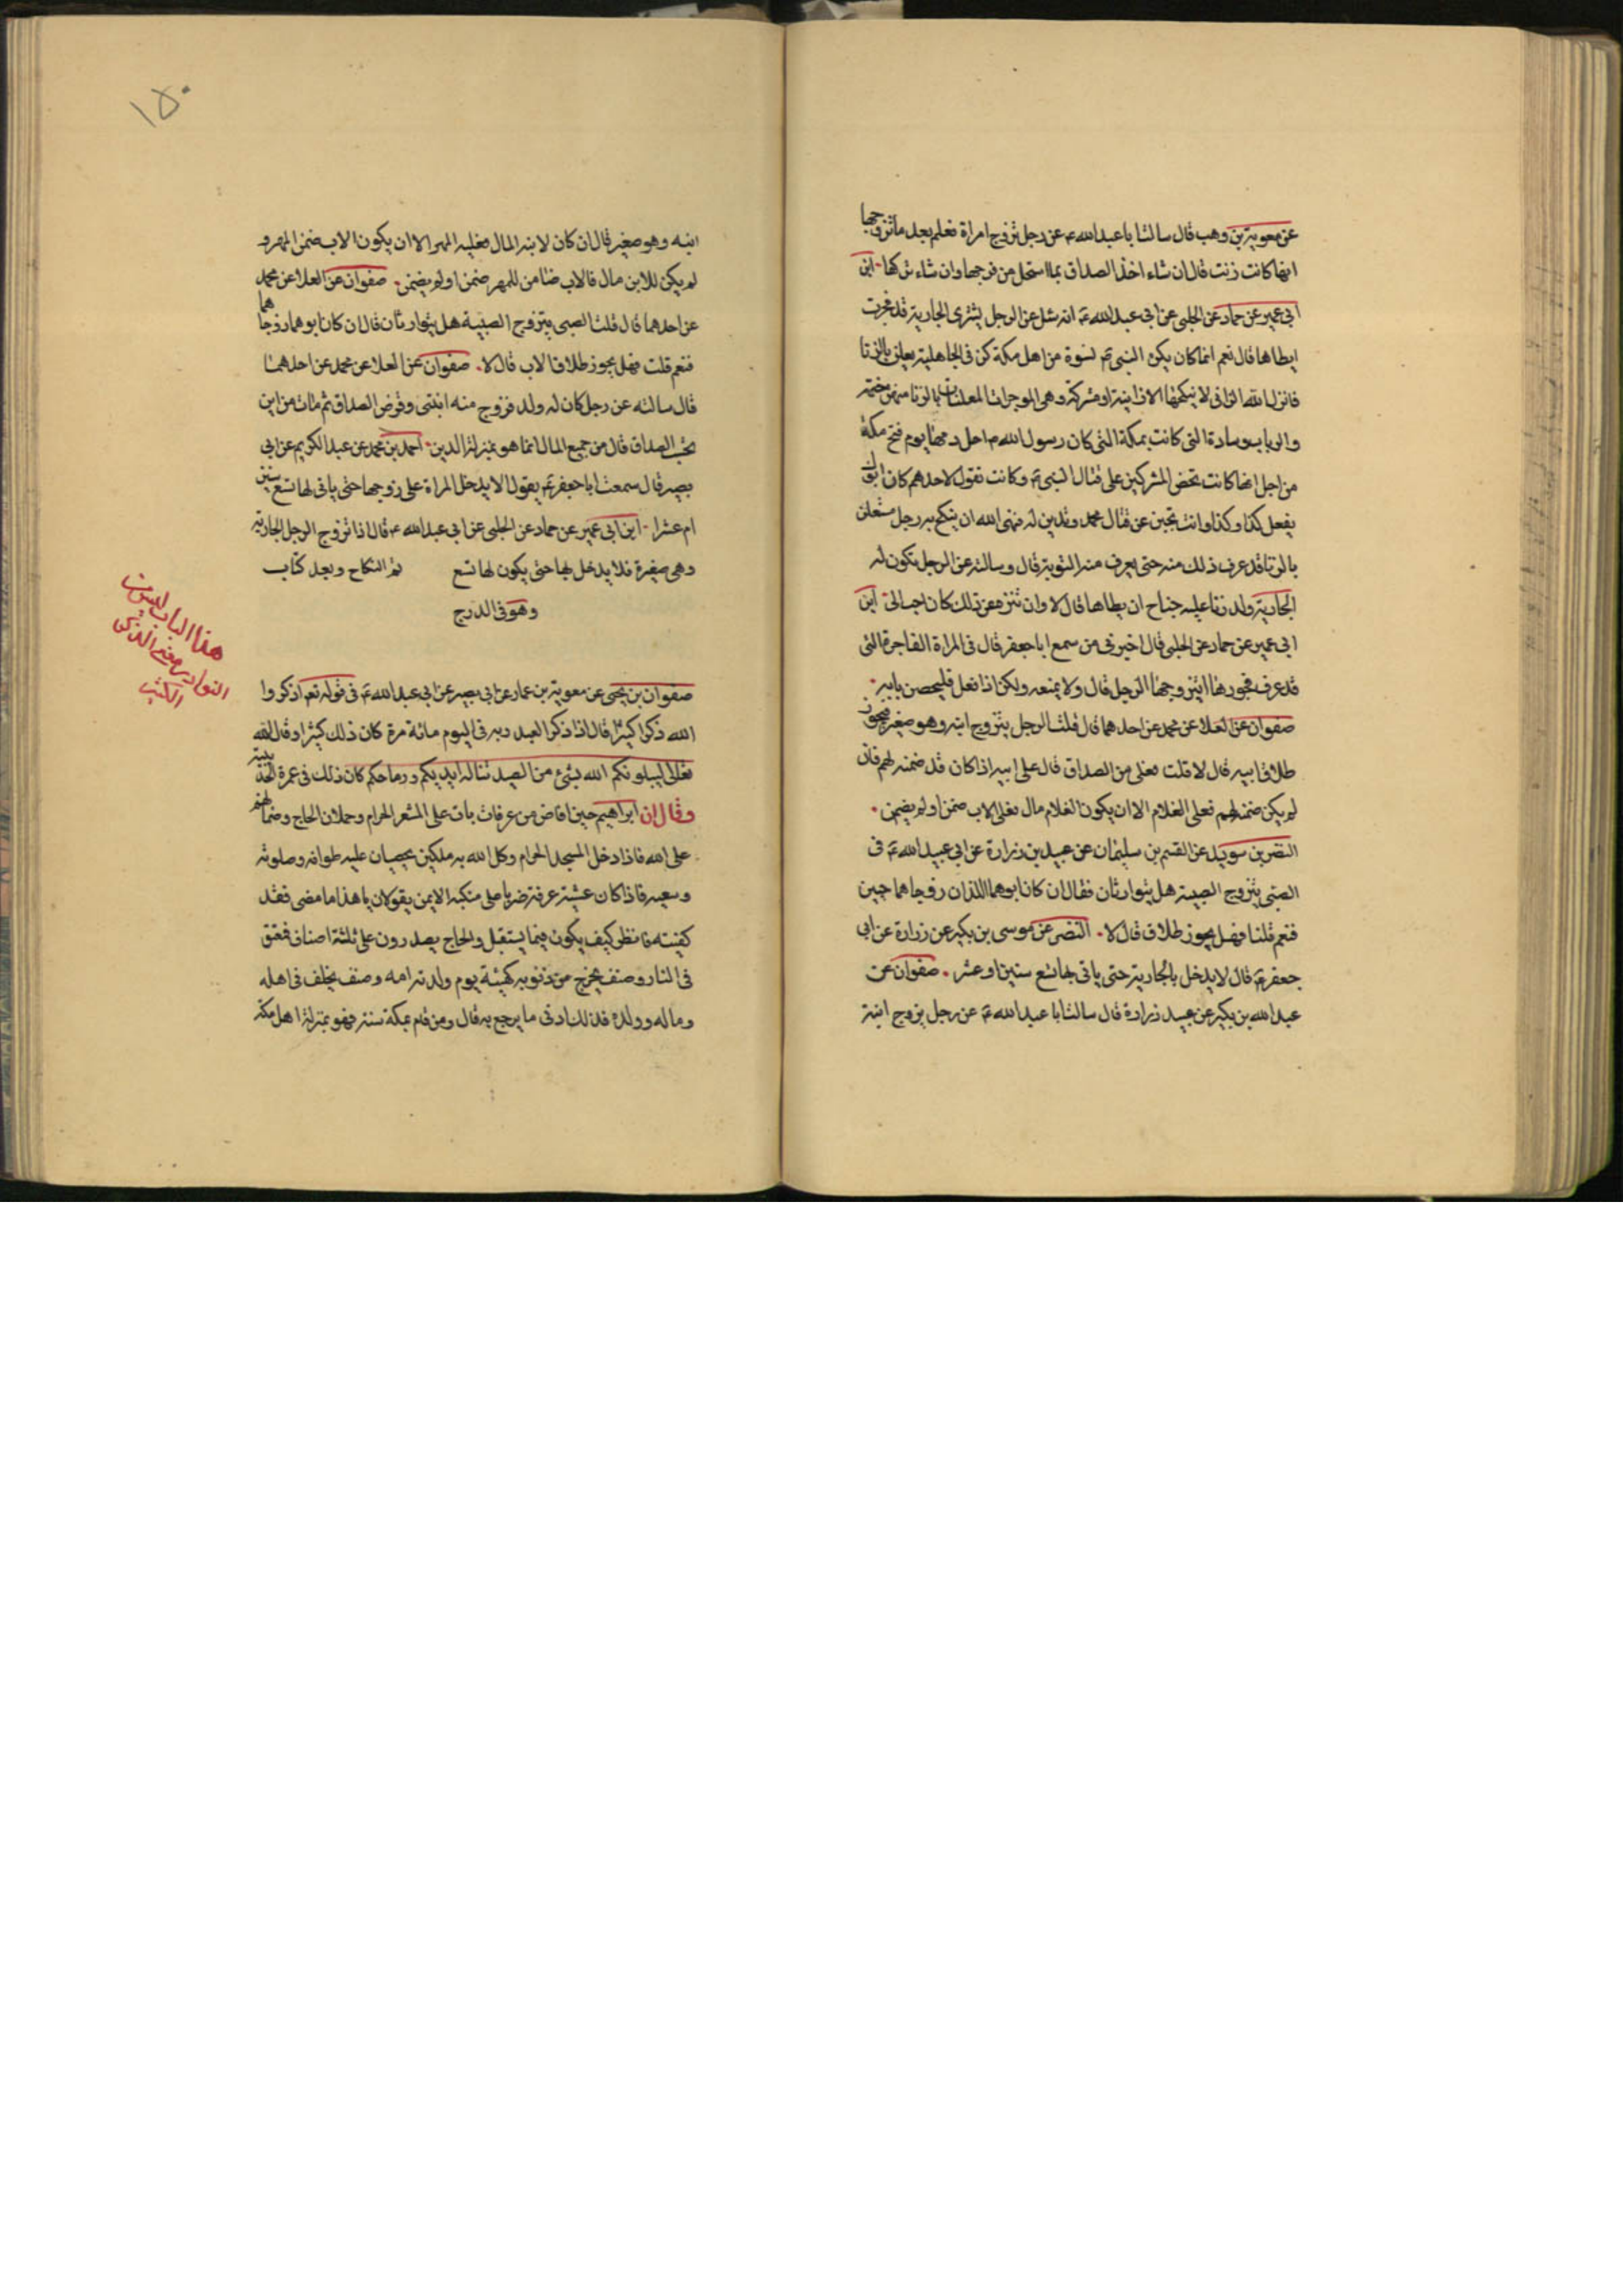 عن معوية بن وهب قال سالت ابا عبد الله ع عن رجل تزوج امراة فعلم بعد ما تزوجها
انها كانت زنت قال ان شاء اخذ الصداق بما استحل من فرجها وان شاء تركها ابن
ابي عمير عن حماد عن الحلبي عن ابي عبد الله ع انه سئل عن الرجل يشتري الجارية قد فجرت
ايطاها قال نعم انما كان يكره النبي ص لنسوة من اهل مكة كن في الجاهلية يعلن بالزنا
فانزل الله الزاني لا ينكح الا زانية او مشركة وهي الموجرات المعلنات بالزنا منهن حنتمه
والرباب وسارة التي كانت بمكة التي كان رسول الله ص احل دمها يوم فتح مكة
من اجل انها كانت تحض المشركين على قتال النبي ص وكانت تقول لاحدهم كان ابوك
يفعل كذا وكذا وانت تجبن عن قتال محمد وتدين له فنهى الله ان ينكح رجل مستعلن
بالزنا قد عرف ذلك منه حتى يعرف منه التوبة قال وسالته عن الرجل تكون له
الجارية ولد زنا عليه جناح ان يطاها قال لا وان تنزه عن ذلك كان احب الي ابن
ابي عمير عن حماد عن الحلبي قال اخبرني من سمع ابا جعفر قال في المراة الفاجرة التي
قد عرف فجورها ايتزوجها الرجل قال ولا يمنعه ولكن اذا فعل فليحصن بابه
صفوان عن العلا عن محمد عن احدهما قال قلت الرجل يتزوج ابنه وهو صغير فيجوز
طلاق ابيه قال لا قلت فعلى من الصداق قال على ابيه اذا كان قد ضمنه لهم فان
لم يكن ضمنه لهم فعلى الغلام الا ان يكون الغلام مال فعلى الاب ضمن او لم يضمن
النضر بن سويد عن القسم بن سليمان عن عبيد بن زرارة عن ابي عبد الله ع في
الصبي يتزوج الصبية هل يتوارثان فقال ان كان ابوهما اللذان زوجاهما حيين
فنعم قلنا فهل يجوز طلاق قال لا النضر عن موسى بن بكير عن زرارة عن ابي
جعفر ع قال لا يدخل بالجارية حتى ياتي لها تسع سنين او عشر صفوان عن
عبد الله بن بكير عن عبيد زرارة قال سالت ابا عبد الله ع عن رجل يزوج ابنة
١٥٠
ابنه وهو صغير قال ان كان لابنه المال فعليه المهر الا ان يكون الاب ضمن المهر و
لم يكن للابن مال فالاب ضامن للمهر ضمن او لم يضمن صفوان عن العلا عن محمد
عن احدهما قال قلت الصبي يتزوج الصبية هل يتوارثان قال ان كان ابوهما زوجاهما
فنعم قلت فهل يجوز طلاق الاب قال لا صفوان عن العلا عن محمد عن احدهما
قال سالته عن رجل كان له ولد فزوج منه ابنتي وفرض الصداق ثم مات من اين
يحسب الصداق قال من جميع المال انما هو بمنزلة الدين احمد بن محمد عن عبد الكريم عن ابي
بصير قال سمعت ابا جعفر ع يقول لا يدخل المراة على زوجها حتى ياتي لها تسع سنين
ام عشرا ابن ابي عمير عن حماد عن الحلبي عن ابي عبد الله ع قال اذا تزوج الرجل الجارية
وهي صغيرة فلا يدخل بها حتى يكون لها تسع تم النكاح وبعد كتاب
وهو في الدرج
هذا الباب ليس من
النوادر
الكتب
صفوان بن يحيى عن معوية بن عمار عن ابي بصير عن ابي عبد الله ع في قوله تع اذكروا
الله ذكرا كثيرا قال اذا ذكر العبد ربه في اليوم مائة مرة كان ذلك كثيرا وقال لقه
تعالى ليبلونكم الله بشيء من الصيد تناله ايديكم ورماحكم كان ذلك في عمرة الحديبية
وقال ان ابراهيم حين افاض من عرفات بات على المشعر الحرام وحملان الحاج وضمانهم
على الله فاذا دخل المسجد الحرام وكل الله به ملكين يحصيان عليه طوافه وصلوته
وسعيه فاذا كان عشية عرفة ضربا على منكبه الايمن يقولان يا هذا ما مضى فقد
كفيته فانظر كيف يكون فيما يستقبل والحاج يصدرون على ثلثة اصناف فعتق
في النار وصنف يخرج من ذنوبه كهيئة يوم ولدته امه وصنف يخلف في اهله
وماله وولده فذلك ادنى ما يرجع به قال ومن قام بمكة سنة فهو بمنزلة اهل مكة